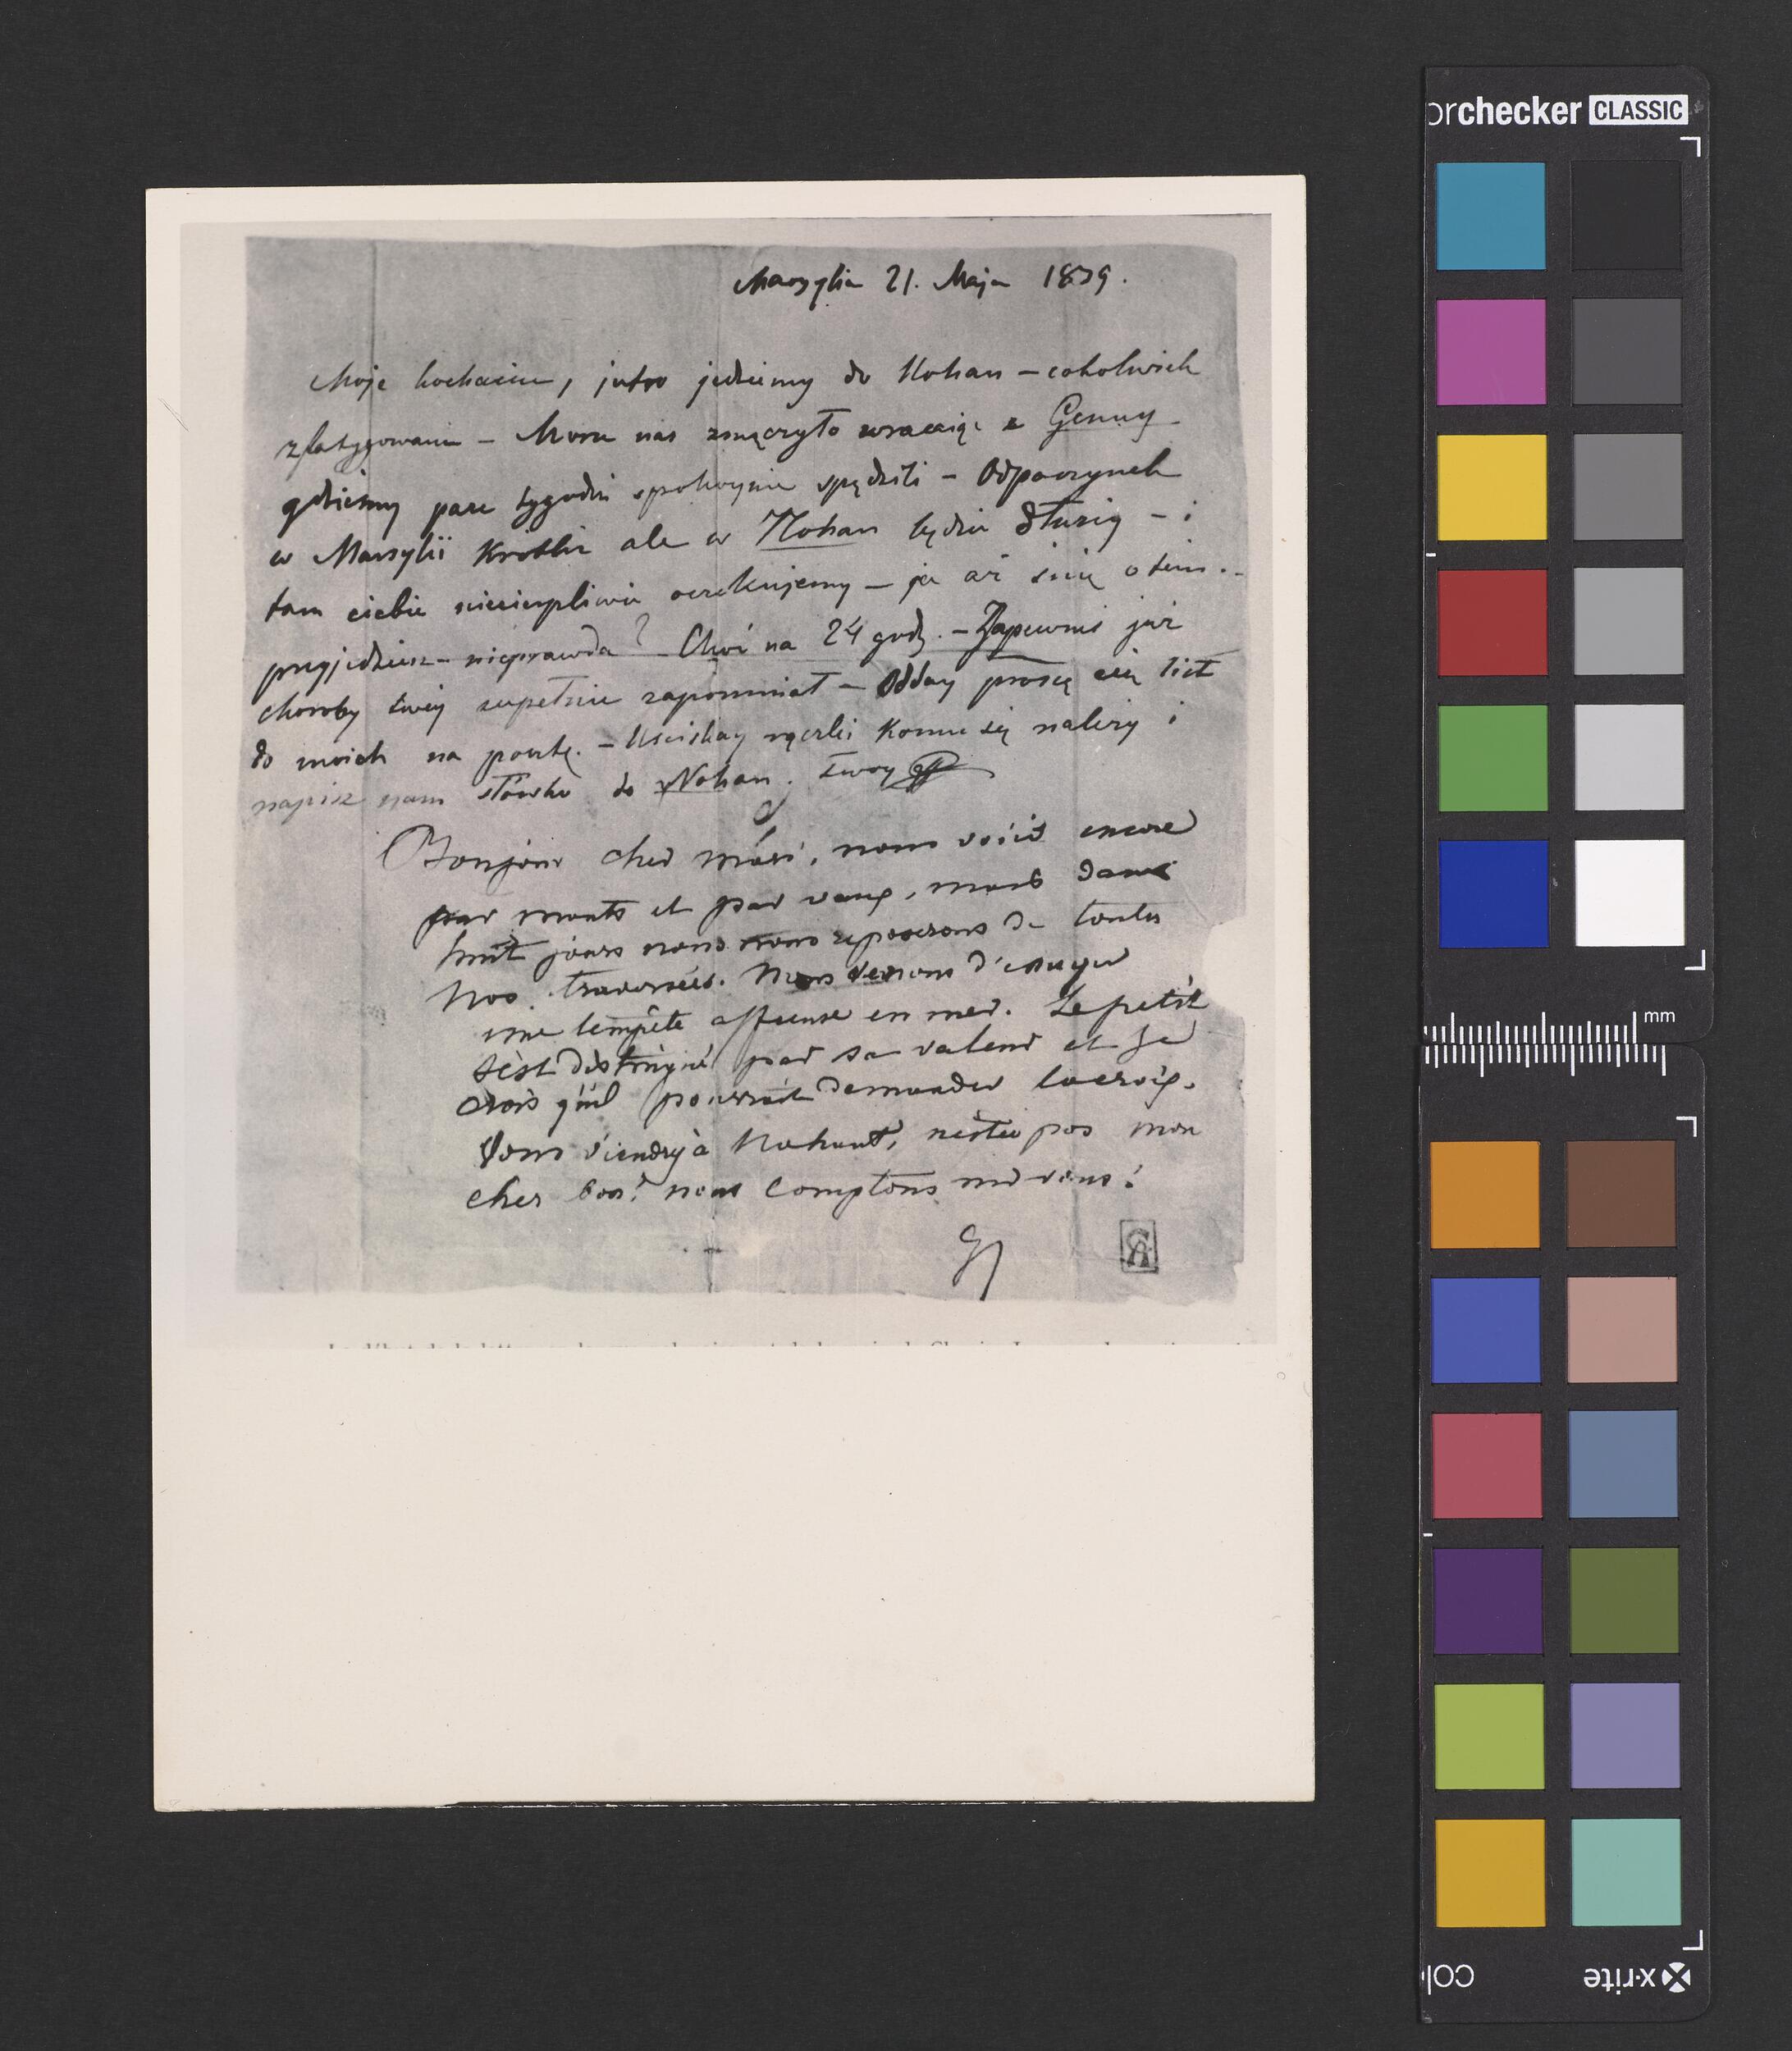 Marsylia 21. Maja 1839.
Moje kochanie, jutro jedziemy do Nohan – cokolwiek
zfatygowani – Morze nas zmęczyło wracając z Genuy
gdzieśmy pare tygodni spokoynie spędzili – Odpoczynek
w Marsylii krótki ale w Nohan będzie dłuższy – i
tam ciebie niecierpliwie oczekujemy – ja aż śnię o tem..
przyjedziesz – nieprawda? Choć na 24 godz. – Zapewnie już
choroby twéy zupełnie zapomniał – Odday proszę cię list
do moich na pocztę. – Uściskay rączki komu się należy i
napisz nam słówko do Nohan. twoy
Bonjour cher mari, nous voici encore
par monts et par vaux, mais dans
huit jours nous nous reposerons de toutes
nos traversées. Nous venons d'essuyer
une tempête affreuse en mer. Le petit
s'est distingué par sa valeur et je
crois qu'il pourrait demander la croix.
Vous viendrez à Nohant, n'est ce pas mon
cher bon? nous comptons sur vous!
G
orchecker CLASSIC
mm
x·rite
col